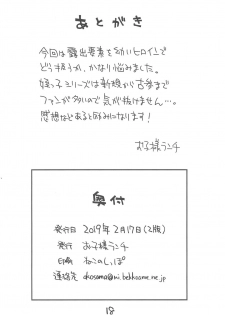 あとがき
今回は露出要素を幼いヒロインで
どう扱うか、かなり悩みました。
妹っ子シリーズは新規から古参まで
ファンが多いので気が抜けません…。
感想などあると励みになります!
お子様ランチ
奥付
発行日 2019年2月17日(2版)
発行 お子様ランチ
印刷 ねこのしっぽ
連絡先 okosama@xi.bekkoame.ne.jp
18